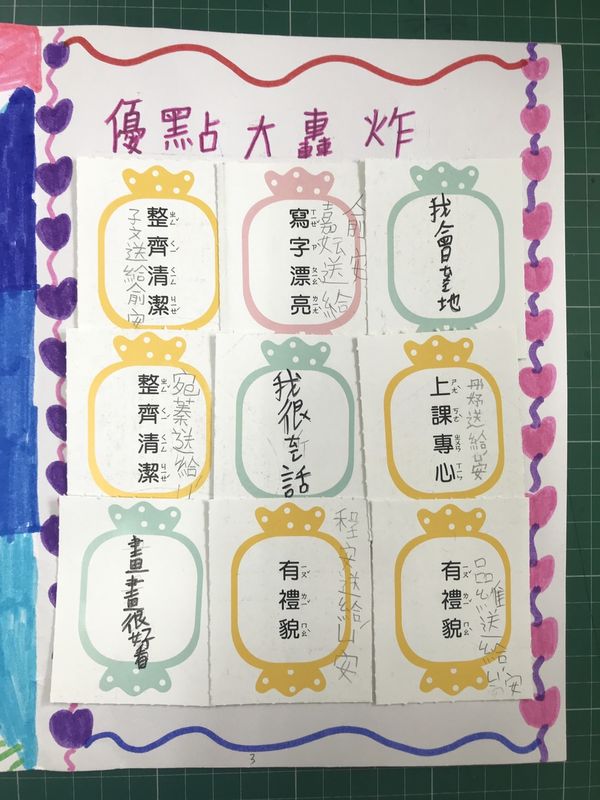 優點大轟炸
整齊清潔
子文送給俞安
俞安
嘉妘送給
寫字漂亮
我會地
宛蓁送給
整齊清潔
我很話
送給安
上課專心
畫畫很好看
程安送給安
有禮貌
品送給安
有禮貌
3